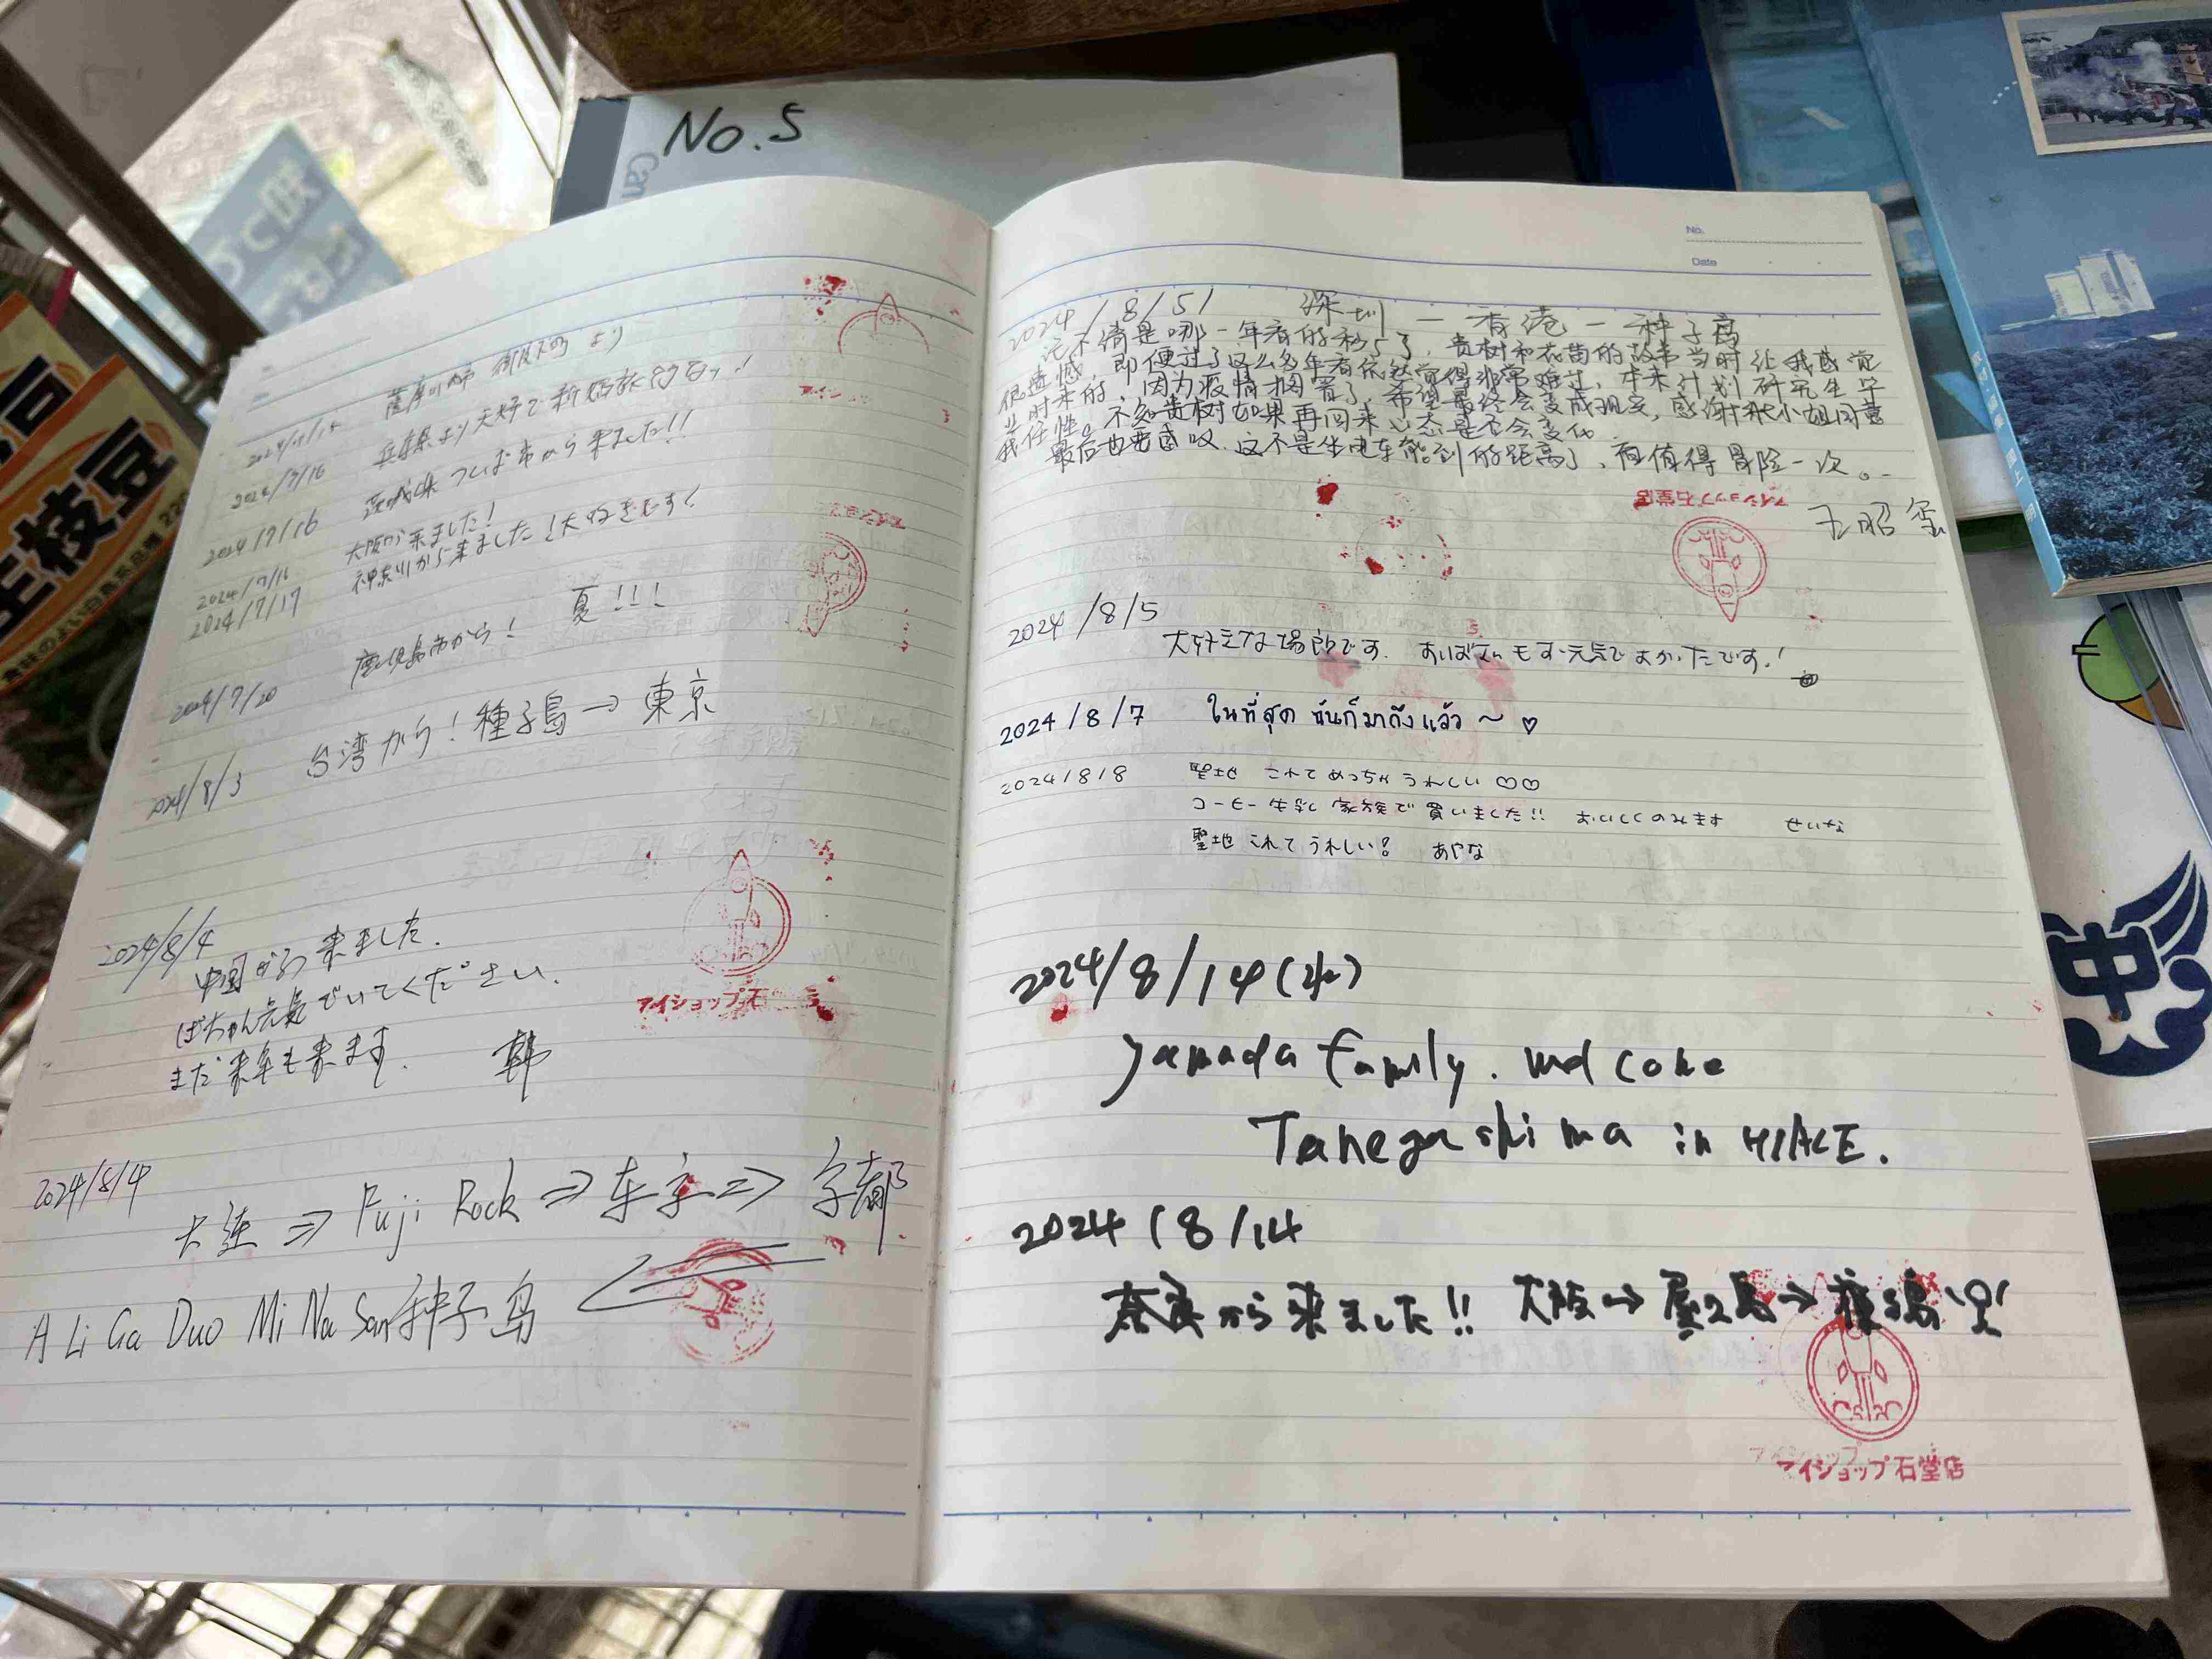 No.5
2024/7/16
兵庫県より大好で新婚旅行
2024/7/16
茨城県 つくば市から来ました!!
2024/7/16
大阪から来ました!
2024/7/17
神奈川から来ました!大好きです!
夏!!!
2024/7/20
鹿児島市から!
2024/8/3
台湾から!種子島→東京
2024/8/4
中国から来ました.
ばちゃん元気でいてください.
まだ来年も来ます. 韩
2024/8/4
大连⇒Fuji Rock⇒东京⇒京都
A Li Ga Duo Mi Na San 种子岛
アイショップ石
No.
Date
2024/8/5/ 深圳-香港-种子岛
记不清是哪一年看的秒5了,贵树和花苗的故事当时让我感觉
很遗憾,即便过了这么多年看依然觉得非常难过,本来计划研究生毕
业时来的,因为疫情搁置了,希望最终会变成现实,感谢秋小姐同意
我任性。不知贵树如果再回来心态是否会变化
最后也要面叹.这不是坐电车能到的距离了,但值得冒险一次。
アイショップ石堂店
2024/8/5
大好きな場所です. おばさんも元気でよかったです!
2024/8/7 ในที่สุด ฉันก็มาถึงแล้ว ~ ♡
2024/8/8 聖地 これてめっちゃうれしい ♡♡
コーヒー牛乳 家族で買いました!! おいしくのみます せいな
聖地 これてうれしい? あやな
2024/8/14(水)
yamada family. welcome
Tanegashima in HIACE.
2024/8/14
奈良から来ました!! 大阪→屋久島→種子島
アイショップ石堂店
枝豆
中